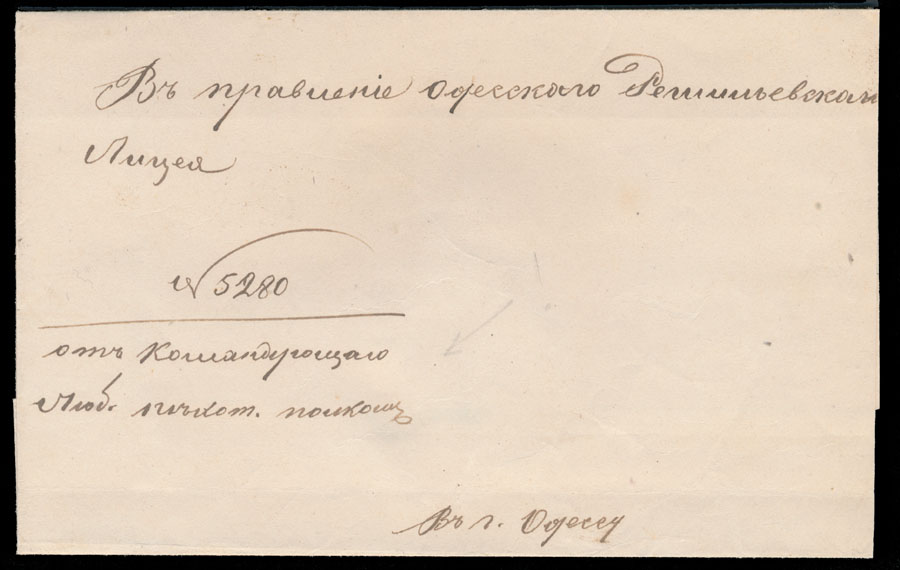 Въ правленіе Одесскаго Решильевскаго
Лицея
№ 5280
отъ Командующаго
Люб. пѣхот. полкомъ
Въ г. Одессу